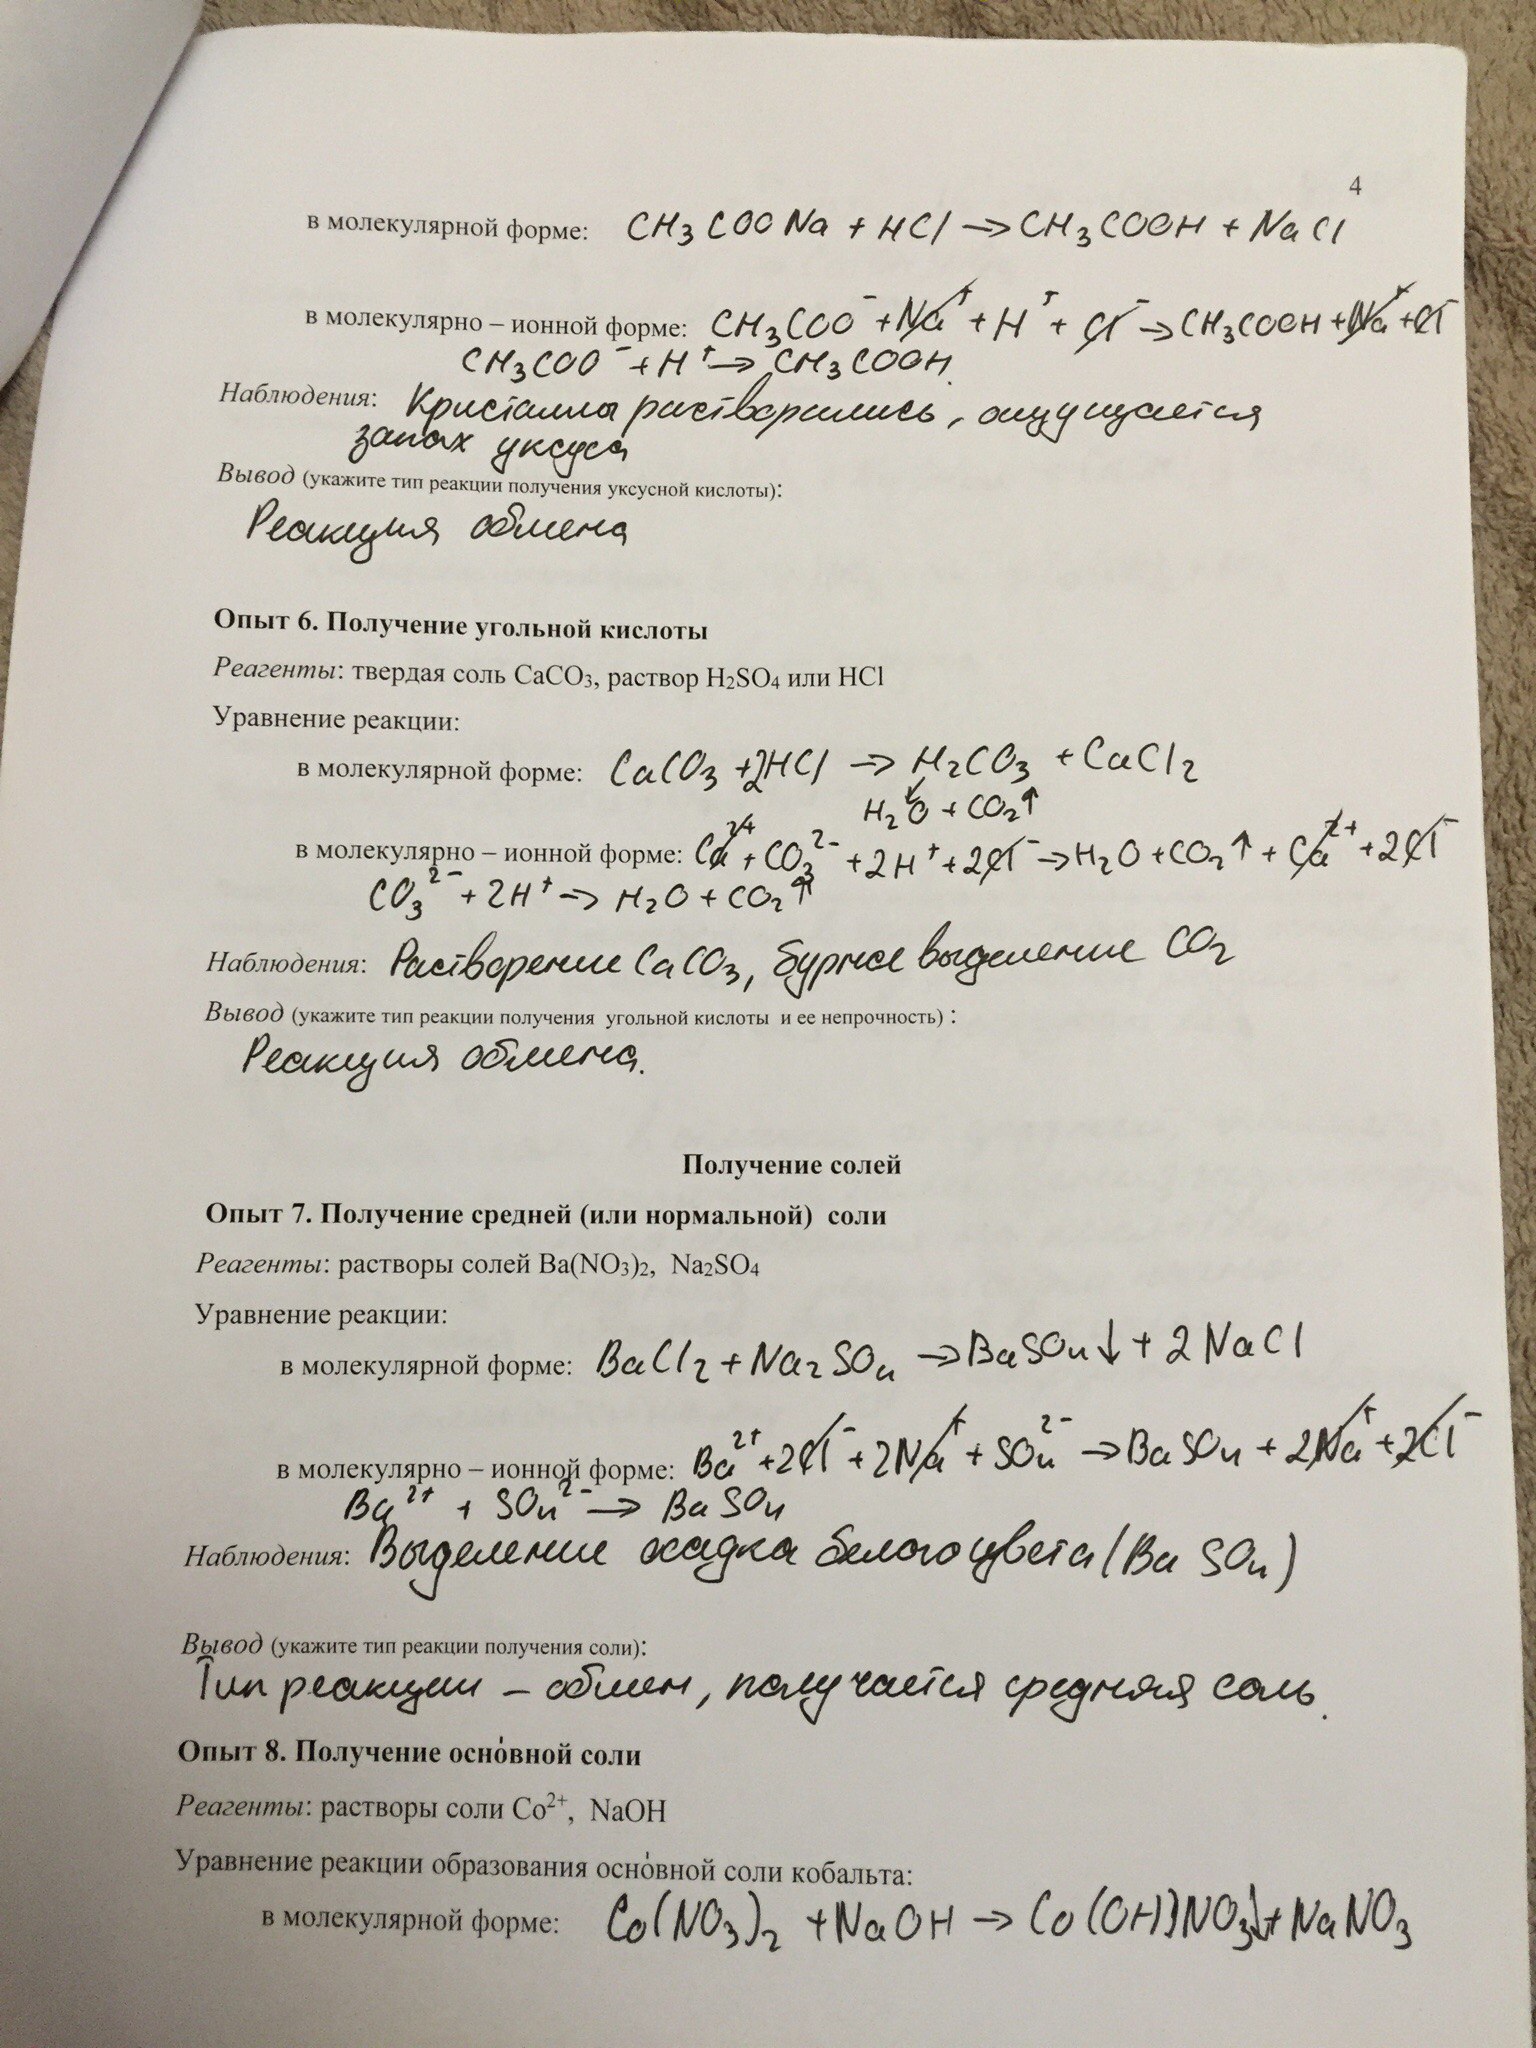 4
в молекулярной форме: CH₃COONa + HCl → CH₃COOH + NaCl
в молекулярно – ионной форме: CH₃COO⁻ + Na⁺ + H⁺ + Cl⁻ → CH₃COOH + Na⁺ + Cl⁻
CH₃COO⁻ + H⁺ → CH₃COOH.
Наблюдения: Кристаллы растворились, ощущается
запах уксуса
Вывод (укажите тип реакции получения уксусной кислоты):
Реакция обмена
Опыт 6. Получение угольной кислоты
Реагенты: твердая соль CaCO₃, раствор H₂SO₄ или HCl
Уравнение реакции:
в молекулярной форме: CaCO₃ + 2HCl → H₂CO₃ + CaCl₂
H₂O + CO₂↑
в молекулярно – ионной форме: Ca²⁺ + CO₃²⁻ + 2H⁺ + 2Cl⁻ → H₂O + CO₂↑ + Ca²⁺ + 2Cl⁻
CO₃²⁻ + 2H⁺ → H₂O + CO₂↑
Наблюдения: Растворение CaCO₃, бурное выделение CO₂
Вывод (укажите тип реакции получения угольной кислоты и ее непрочность) :
Реакция обмена.
Получение солей
Опыт 7. Получение средней (или нормальной) соли
Реагенты: растворы солей Ba(NO₃)₂, Na₂SO₄
Уравнение реакции:
в молекулярной форме: BaCl₂ + Na₂SO₄ → BaSO₄↓ + 2NaCl
в молекулярно – ионной форме: Ba²⁺ + 2Cl⁻ + 2Na⁺ + SO₄²⁻ → BaSO₄ + 2Na⁺ + 2Cl⁻
Ba²⁺ + SO₄²⁻ → BaSO₄
Наблюдения: Выделение осадка белого цвета (BaSO₄)
Вывод (укажите тип реакции получения соли):
Тип реакции – обмен, получается средняя соль.
Опыт 8. Получение осно́вной соли
Реагенты: растворы соли Co²⁺, NaOH
Уравнение реакции образования осно́вной соли кобальта:
в молекулярной форме: Co(NO₃)₂ + NaOH → Co(OH)NO₃↓ + NaNO₃